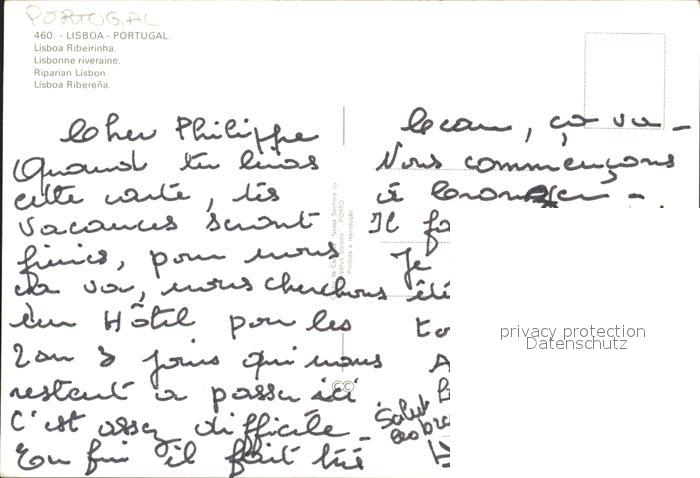 PORTUGAL
460. - LISBOA - PORTUGAL.
Lisboa Ribeirinha.
Lisbonne riveraine.
Riparian Lisbon.
Lisboa Ribereña.
Cher Philippe
Quand tu liras
cette carte, tes
vacances seront
finies, pour nous
ça va, nous cherchons
un Hôtel pour les
2 ou 3 jours qui nous
restent a passer ici
C'est assez difficile
En fin il fait très
beau, ça va -
Nous commençons
à bronzer -
Il fa
Je
été
to
A
Salut
privacy protection
Datenschutz